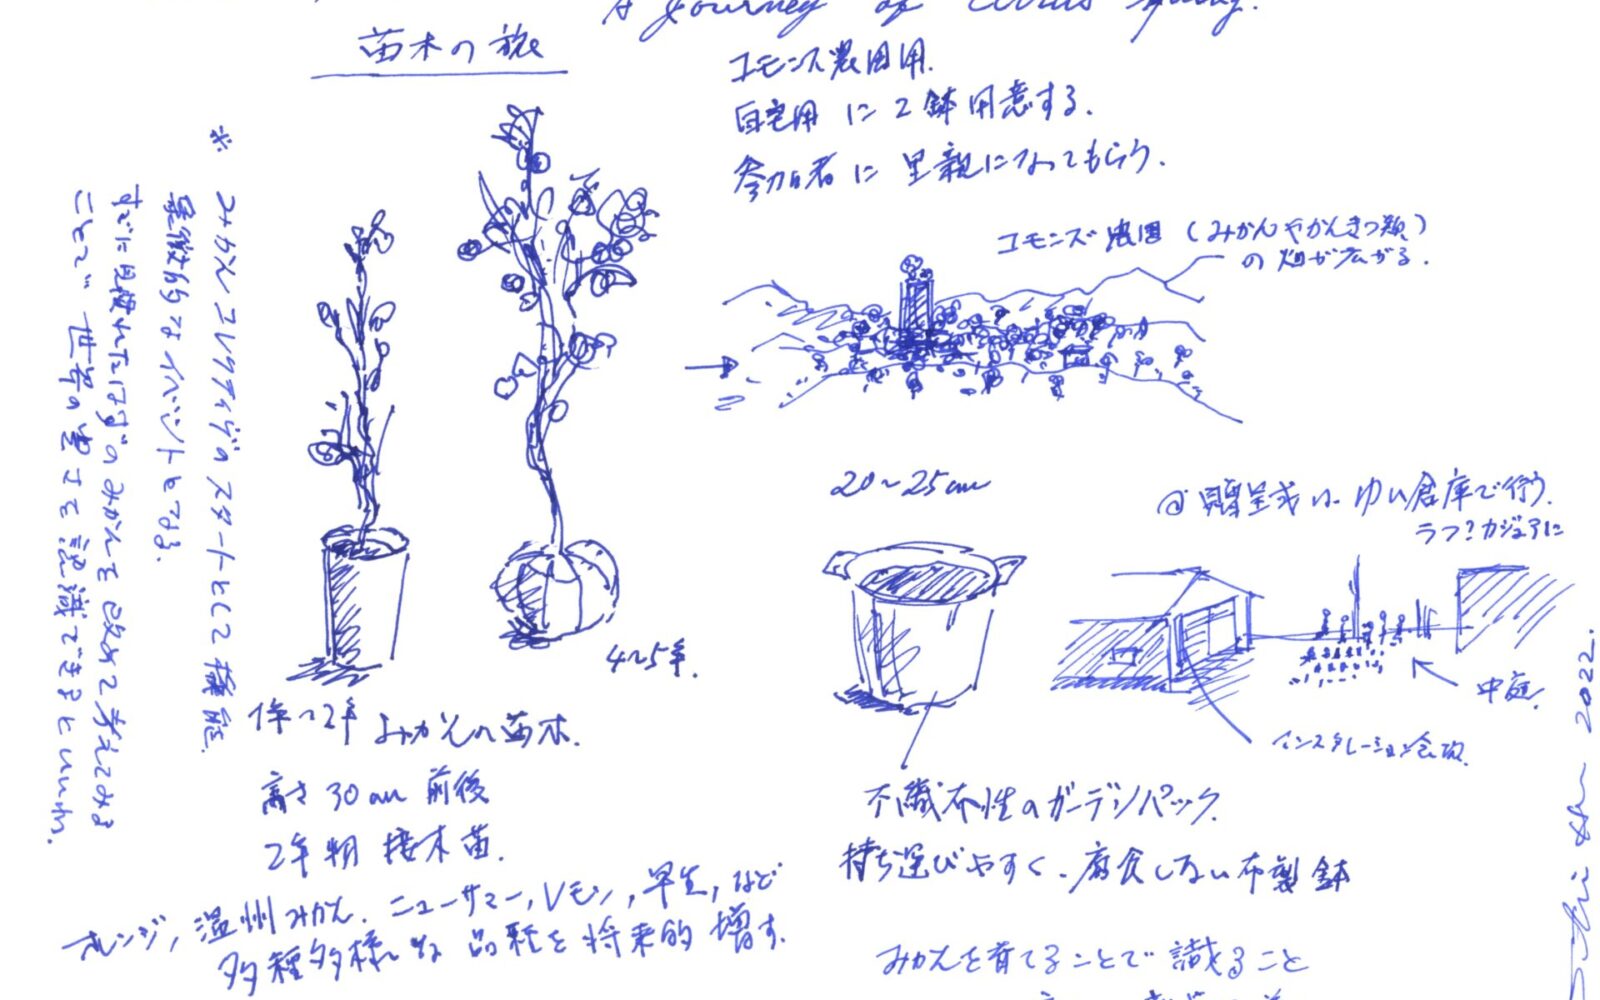 A journey of
苗木の旅
コモンズ農園用.
自宅用 に 2鉢用意する.
参加者 に 里親になってもらう.
コモンズ農園 (みかんやかんきつ類)
の畑が広がる.
※ みかんコレクティヴのスタートとして機能.
象徴的なイベントとなる.
すでに見慣れたはずのみかんを改めて考えてみる
ことで 世界の豊さを認識できるといいね.
4〜5年.
1年〜2年 みかんの苗木.
高さ 30cm 前後
2年判 接木苗.
オレンジ, 温州みかん. ニューサマー, レモン, 早生, など
多種多様な 品種を将来的 増す.
20〜25cm
@贈呈式は. ゆい倉庫で行う.
ラフ?カジュアルに
中庭.
インスタレーション会場.
不織布性のガーデンバック.
持ち運びやすく. 腐食しない布製鉢
みかんを育てることで識ること
2022.